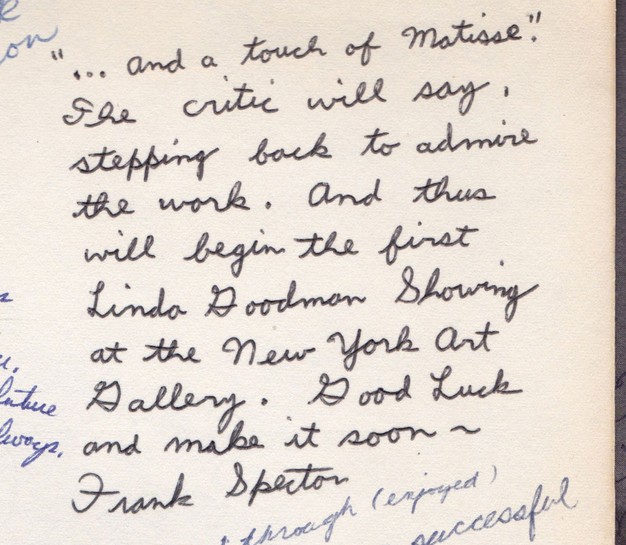 "... and a touch of Matisse."
The critic will say,
stepping back to admire
the work. And thus
will begin the first
Linda Goodman Showing
at the New York Art
Gallery. Good Luck
and make it soon ~
Frank Spector
through (enjoyed)
successful
on
future
always.